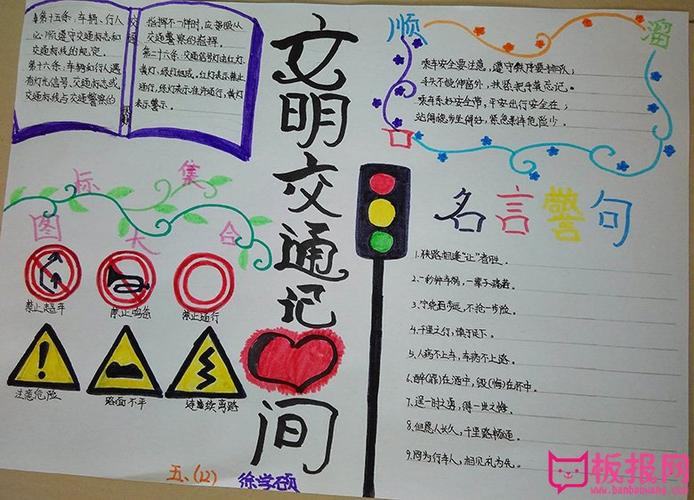 第十五条:车辆、行人
必须遵守交通标志和
交通标线的规定。
第十六条:车辆和行人遇
有灯光信号、交通标志或
交通标线与交通警察的
指挥不一样时,应当服从
交通警察的指挥。
第二十六条:交通信号灯由红灯、
黄灯、绿灯组成。红灯表示禁止
通行,绿灯表示准许通行,黄灯
表示警示。
文明交通记
间
顺
口
溜
乘车安全要注意,遵守秩序要排队;
手头不能伸窗外,扶紧把手莫忘记。
乘车系好安全带,平安出行安全在;
站得稳
图标大集合
禁止超车
禁止鸣笛
禁止通行
注意危险
路面不平
连续弯路
名言警句
1.狭路相逢"让"者胜。
2.一秒钟车祸,一辈子痛苦。
3.宁绕百步远,不抢一步险。
4.千里之行,慎于足下。
5.人病不上车,车病不上路。
6.醉(罪)在酒中,毁(悔)在杯中。
7.逞一时之勇,得一世之憾。
8.但愿人长久,千里路畅通。
9.同为行车人,相见礼为先。
五、(12)
徐学硕
板报网
www.banbaowang.com